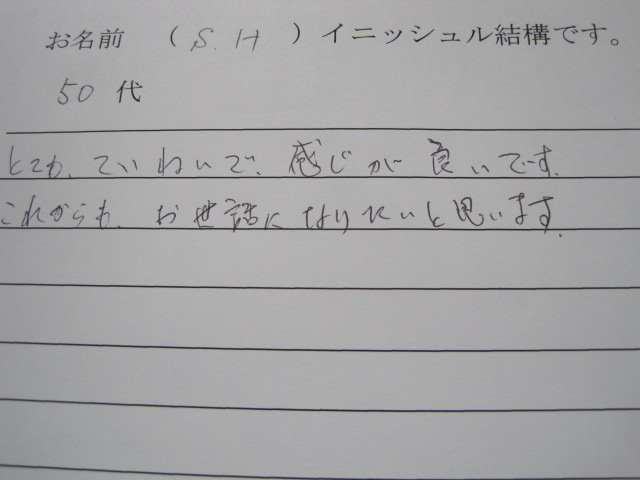 お名前 （ S. H ）イニッシュル結構です。
50 代
とても、ていねいで、感じが良いです。
これからも、お世話になりたいと思います。